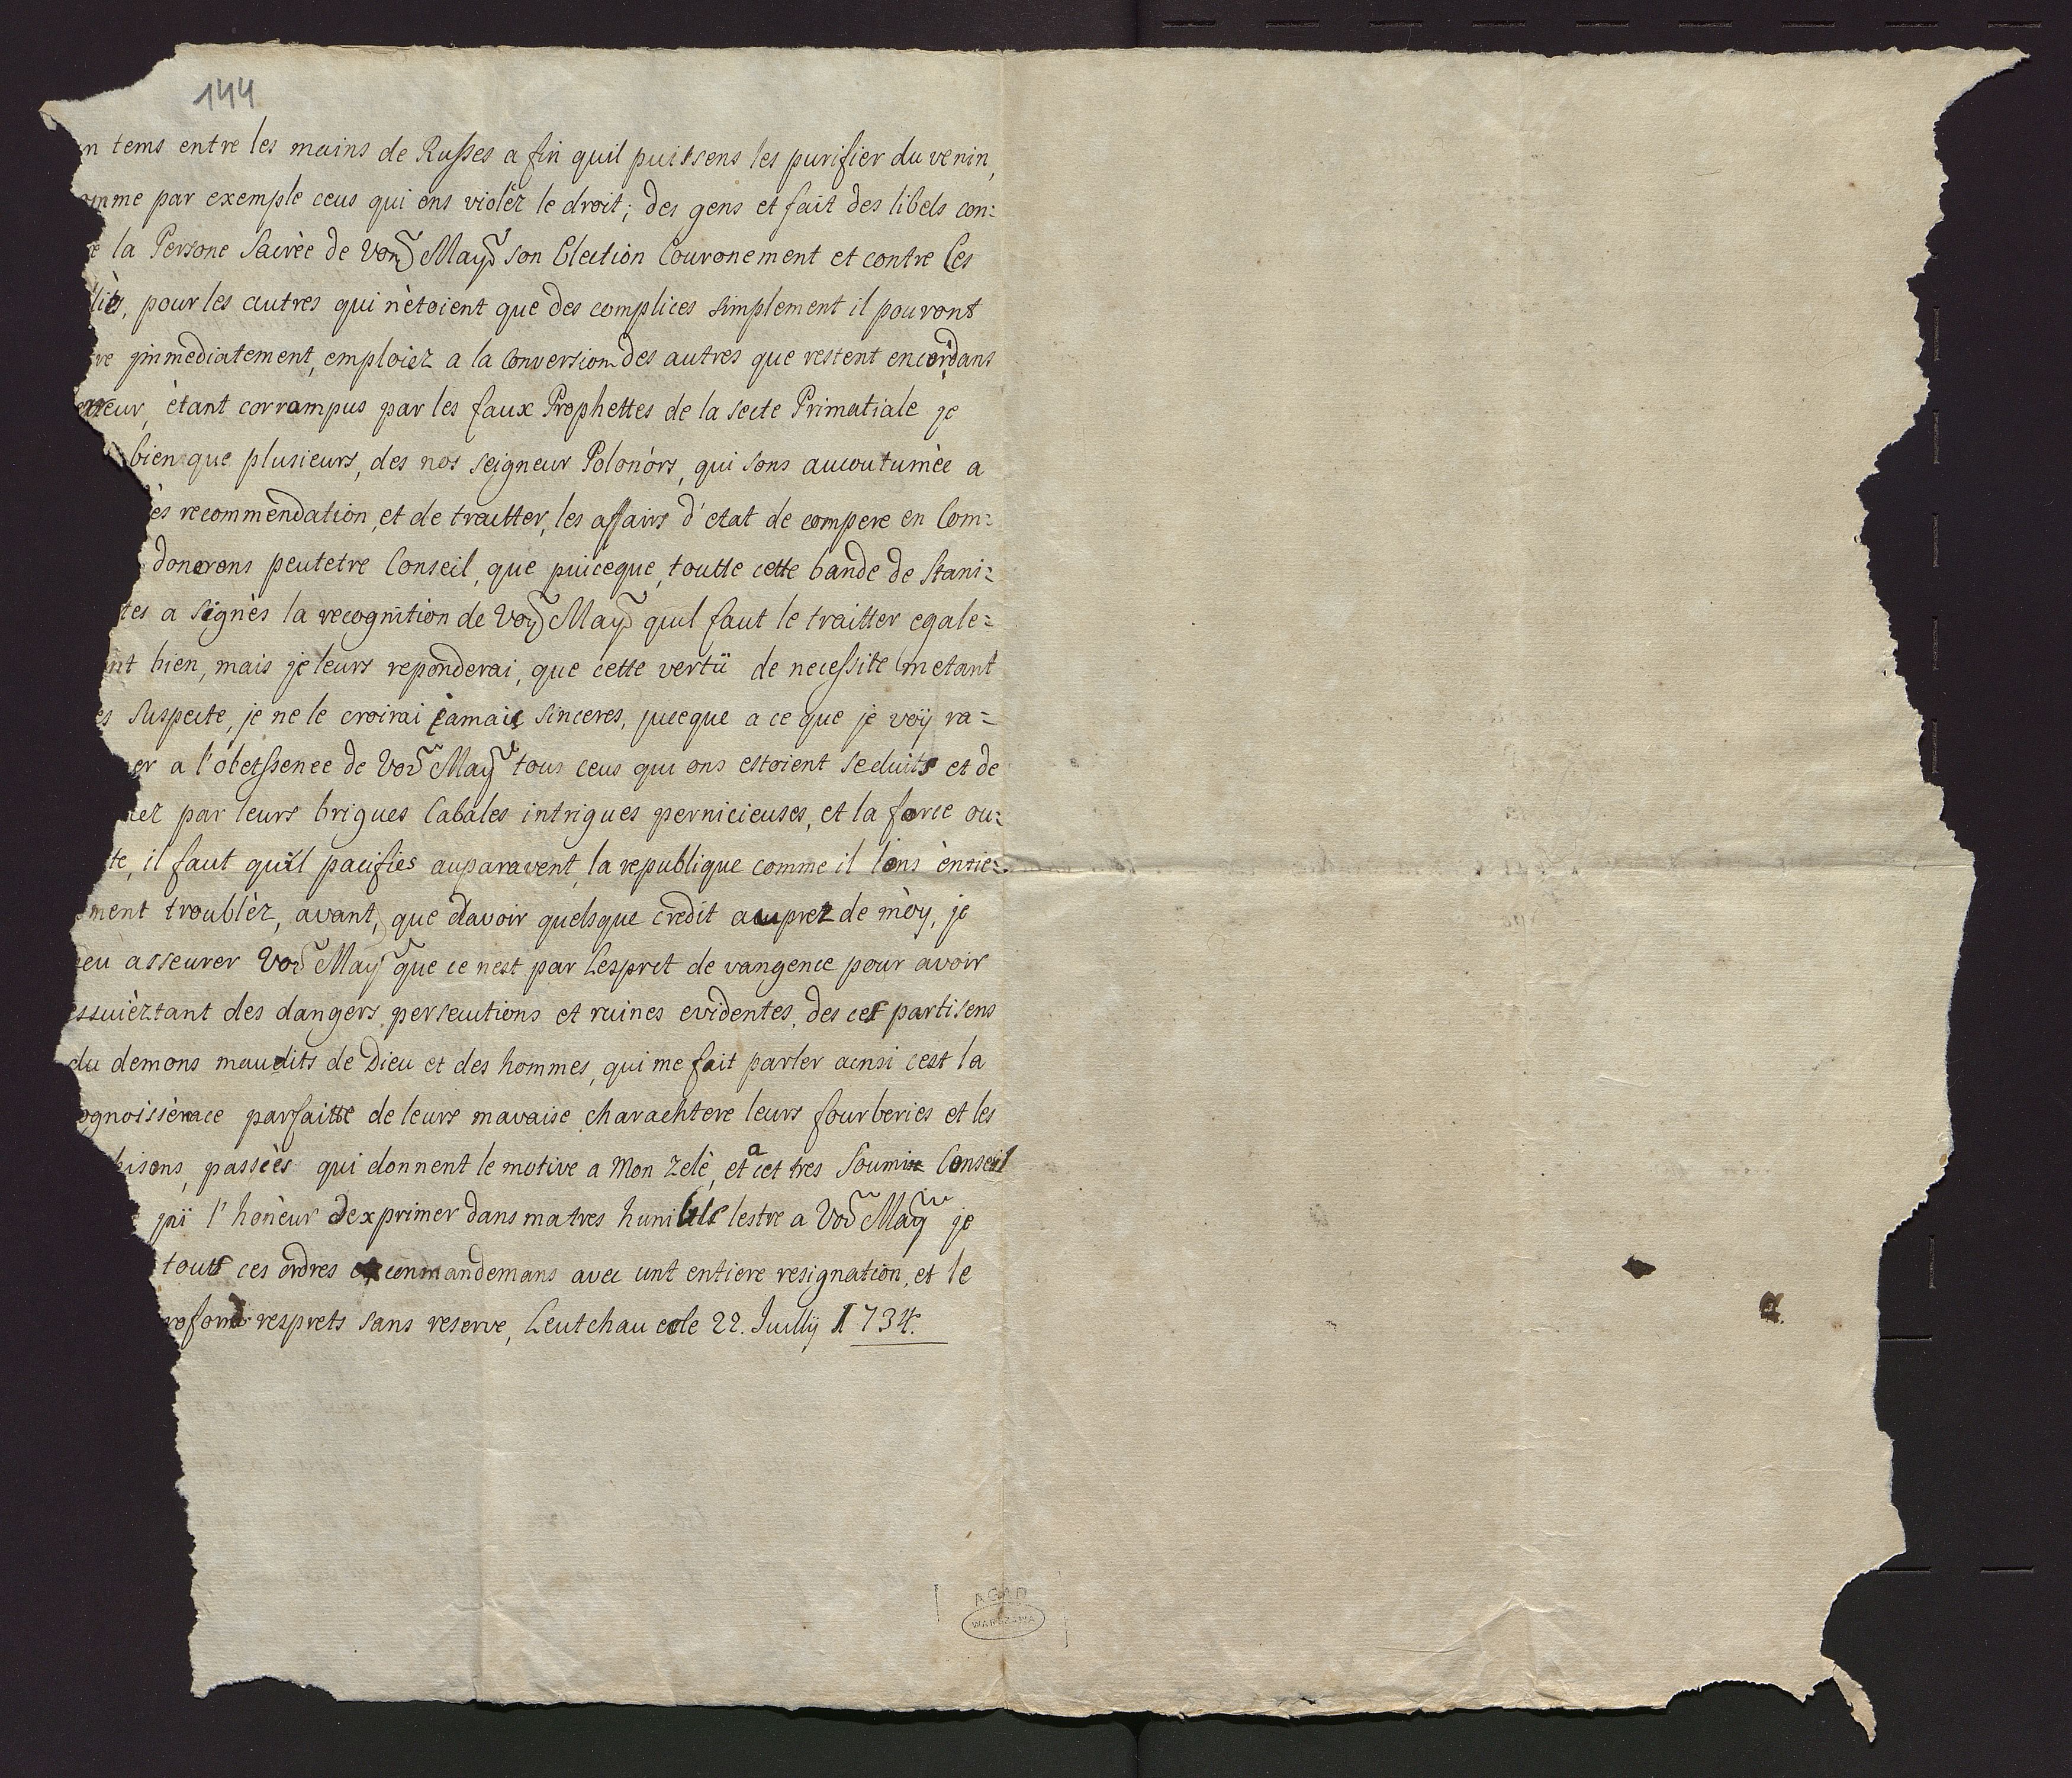 144
n tems entre les mains de Russes a fin quil puissens les purifier du venin,
mme par exemple ceus qui ons violéz le droit; des gens et fait des libels con=
e la Persone Sacrèe de Vor̃ May son Election Couronement et contre Ces
liés, pour les autres qui n'ètoient que des complices simplement il pouront
re jmmediatement, emploiez a la Conversion des autres que restent encor dans
erreur, ètant corrompus par les faux Prophettes de la secte Primatiale je
bien que plusieurs, des nos seigneur Polonòrs, qui sons aucoutumèe a
ès recommendation, et de traitter, les affairs d'etat de compere en Com=
donerons peutetre Conseil, que puiceque, toutte cette bande de Stani=
tes a signès la recognition de Vor̃ May quil faut le traitter egale=
nt bien, mais je leurs reponderai, que cette vertü de necessite metant
es Suspecte, je ne le croirai jamais sinceres, juceque a ce que je voÿ ra=
er a l'obeissence de Vor̃ May tous ceus qui ons estoient seduits et de
nez par leurs brigues Cabales intrigues pernicieuses, et la force ou=
te, il faut quil pacifies auparavent, la republique comme il lons èntie=
ment troublèz, avant, que davoir quelsque credit auprez de mòy, je
peu asseurer Vor̃ May que ce nest par Lesprit de vangence pour avoir
essuièz tant des dangers persecutions et ruines evidentes, des ces partisens
du demons maudits de Dieu et des hommes, qui me fait parler ainsi cest la
ognoissènce parfaitte de leurs mavaise charachtere leurs fourberies et les
hisons, passèès qui donnent le motive a Mon Zelè, et a cet tres Soumis Conseil
jaï l'honèur dexprimer dans ma tres humible lestre a Vor̃ May je
touts ces ordres commandemans avec unt entiere resignation, et le
rofond resprets sans reserve, Leutchau ce le 22. Juillÿ 1734.
AGAD
WARSZAWA